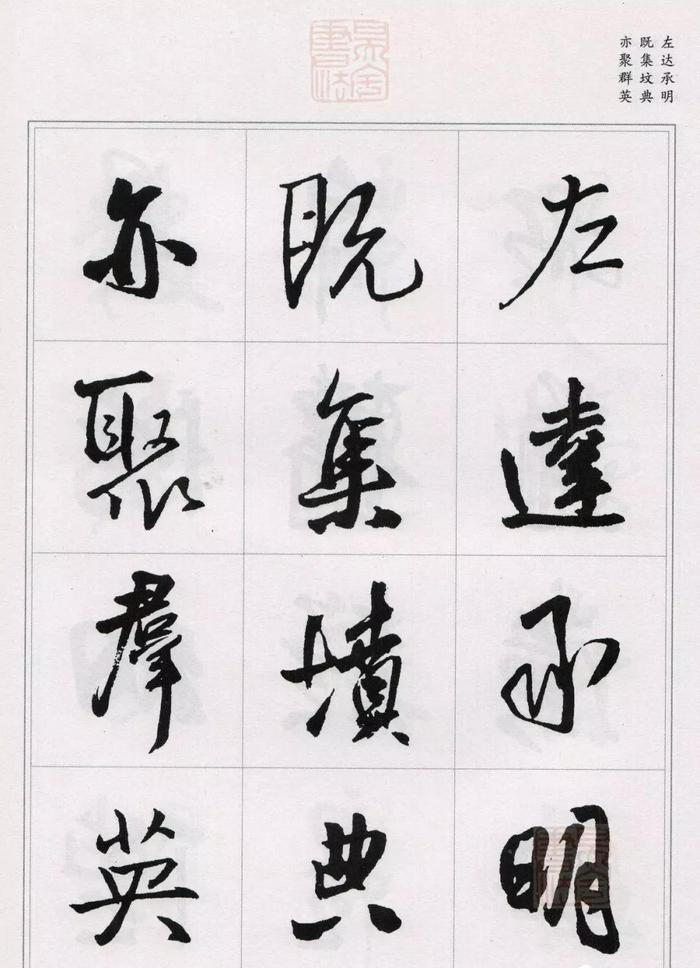 左达承明
既集坟典
亦聚群英
左達承明
既集墳典
亦聚羣英